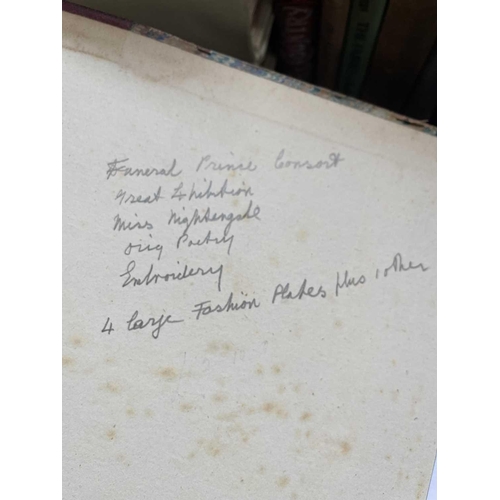 Funeral Prince Consort
Great Exhibition
Miss Nightengale
orig Poetry
Embroidery
4 large Fashion Plates plus 1 other